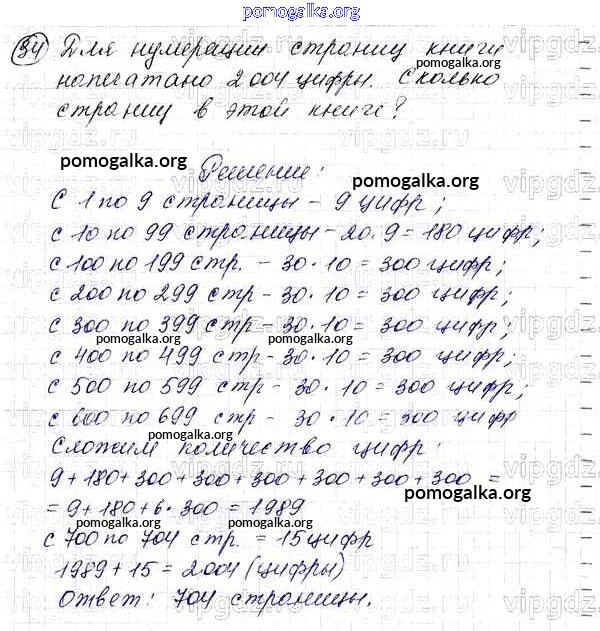 pomogalka.org
34 Для нумерации страниц книги
напечатано 2004 цифры. Сколько
страниц в этой книге?
pomogalka.org
Решение:
pomogalka.org
С 1 по 9 страницы - 9 цифр;
с 10 по 99 страницы - 20·9=180 цифр;
с 100 по 199 стр. - 30·10=300 цифр;
с 200 по 299 стр - 30·10=300 цифр;
с 300 по 399 стр - 30·10=300 цифр;
pomogalka.org
с 400 по 499 стр - 30·10=300 цифр;
с 500 по 599 стр - 30·10=300 цифр;
с 600 по 699 стр - 30·10=300 цифр
pomogalka.org
Сложим количество цифр:
9+180+300+300+300+300+300+300 =
pomogalka.org
= 9+180+6·300=1989
pomogalka.org pomogalka.org
с 700 по 704 стр. = 15 цифр
1989+15=2004 (цифры)
Ответ: 704 страницы.
vipgdz.ru